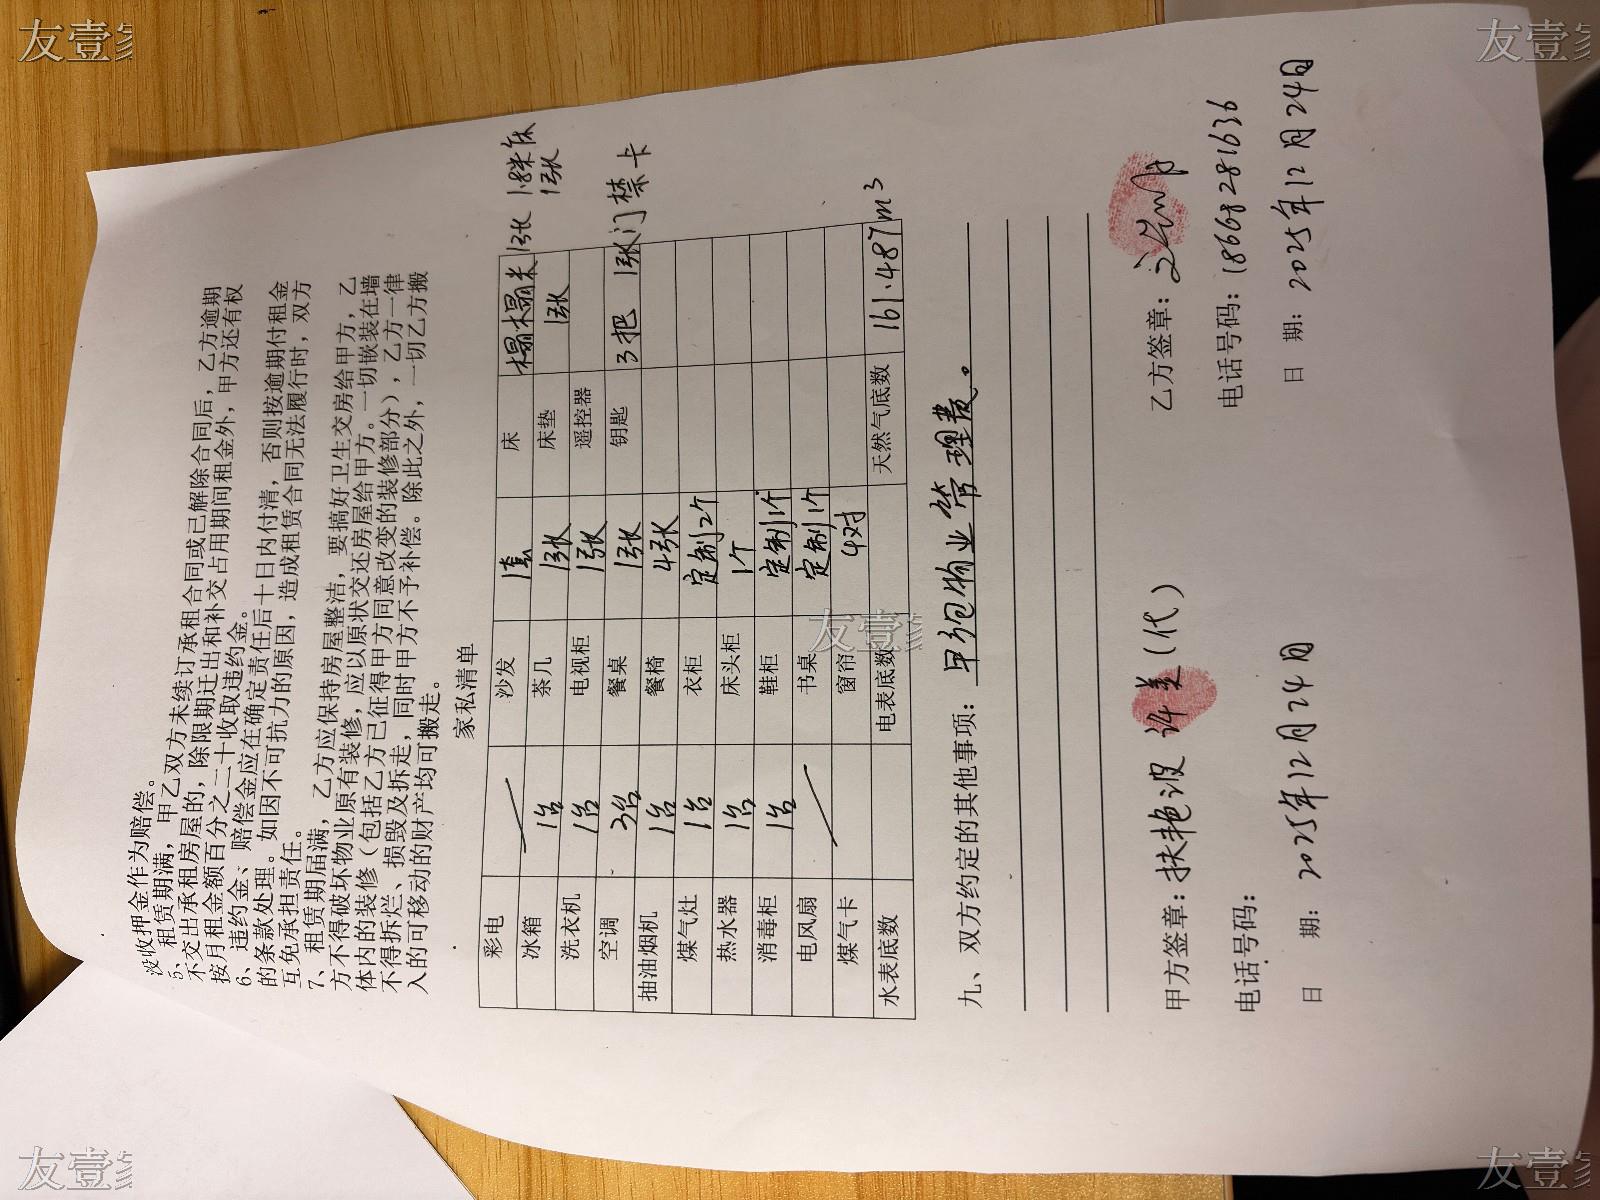 没收押金作为赔偿。
5、租赁期满，甲乙双方未续订承租合同或已解除合同后，乙方逾期
不交出承租房屋的，除限期迁出和补交占用期间租金外，甲方还有权
按月租金额百分之二十收取违约金。
6、违约金、赔偿金应在确定责任后十日内付清，否则按逾期付租金
的条款处理。如因不可抗力的原因，造成租赁合同无法履行时，双方
互免承担责任。
7、租赁期届满，乙方应保持房屋整洁，要搞好卫生交房给甲方，乙
方不得破坏物业原有装修，应以原状交还房屋给甲方。一切嵌装在墙
体内的装修（包括乙方已征得甲方同意改变的装修部分），乙方一律
不得拆烂、损毁及拆走，同时甲方不予补偿。除此之外，一切乙方搬
入的可移动的财产均可搬走。
家私清单
彩电 沙发 1套 床 榻榻米1张 1.8米床1张
冰箱 1台 茶几 1张 床垫 1张
洗衣机 1台 电视柜 1张 遥控器
空调 3台 餐桌 1张 钥匙 3把 1张门禁卡
抽油烟机 1台 餐椅 4张
煤气灶 1台 衣柜 定制2个
热水器 1台 床头柜 1个
消毒柜 1台 鞋柜 定制1个
电风扇 书桌 定制1个
煤气卡 窗帘 4对
水表底数 电表底数 天然气底数 161.487m3
九、双方约定的其他事项：甲包物业管理费。
甲方签章：扶艳波 许美（代） 乙方签章：
电话号码： 电话号码：18668281636
日 期：2025年12月24日 日 期：2025年12月24日
友壹家
友壹家
友壹家
友壹家
友壹家